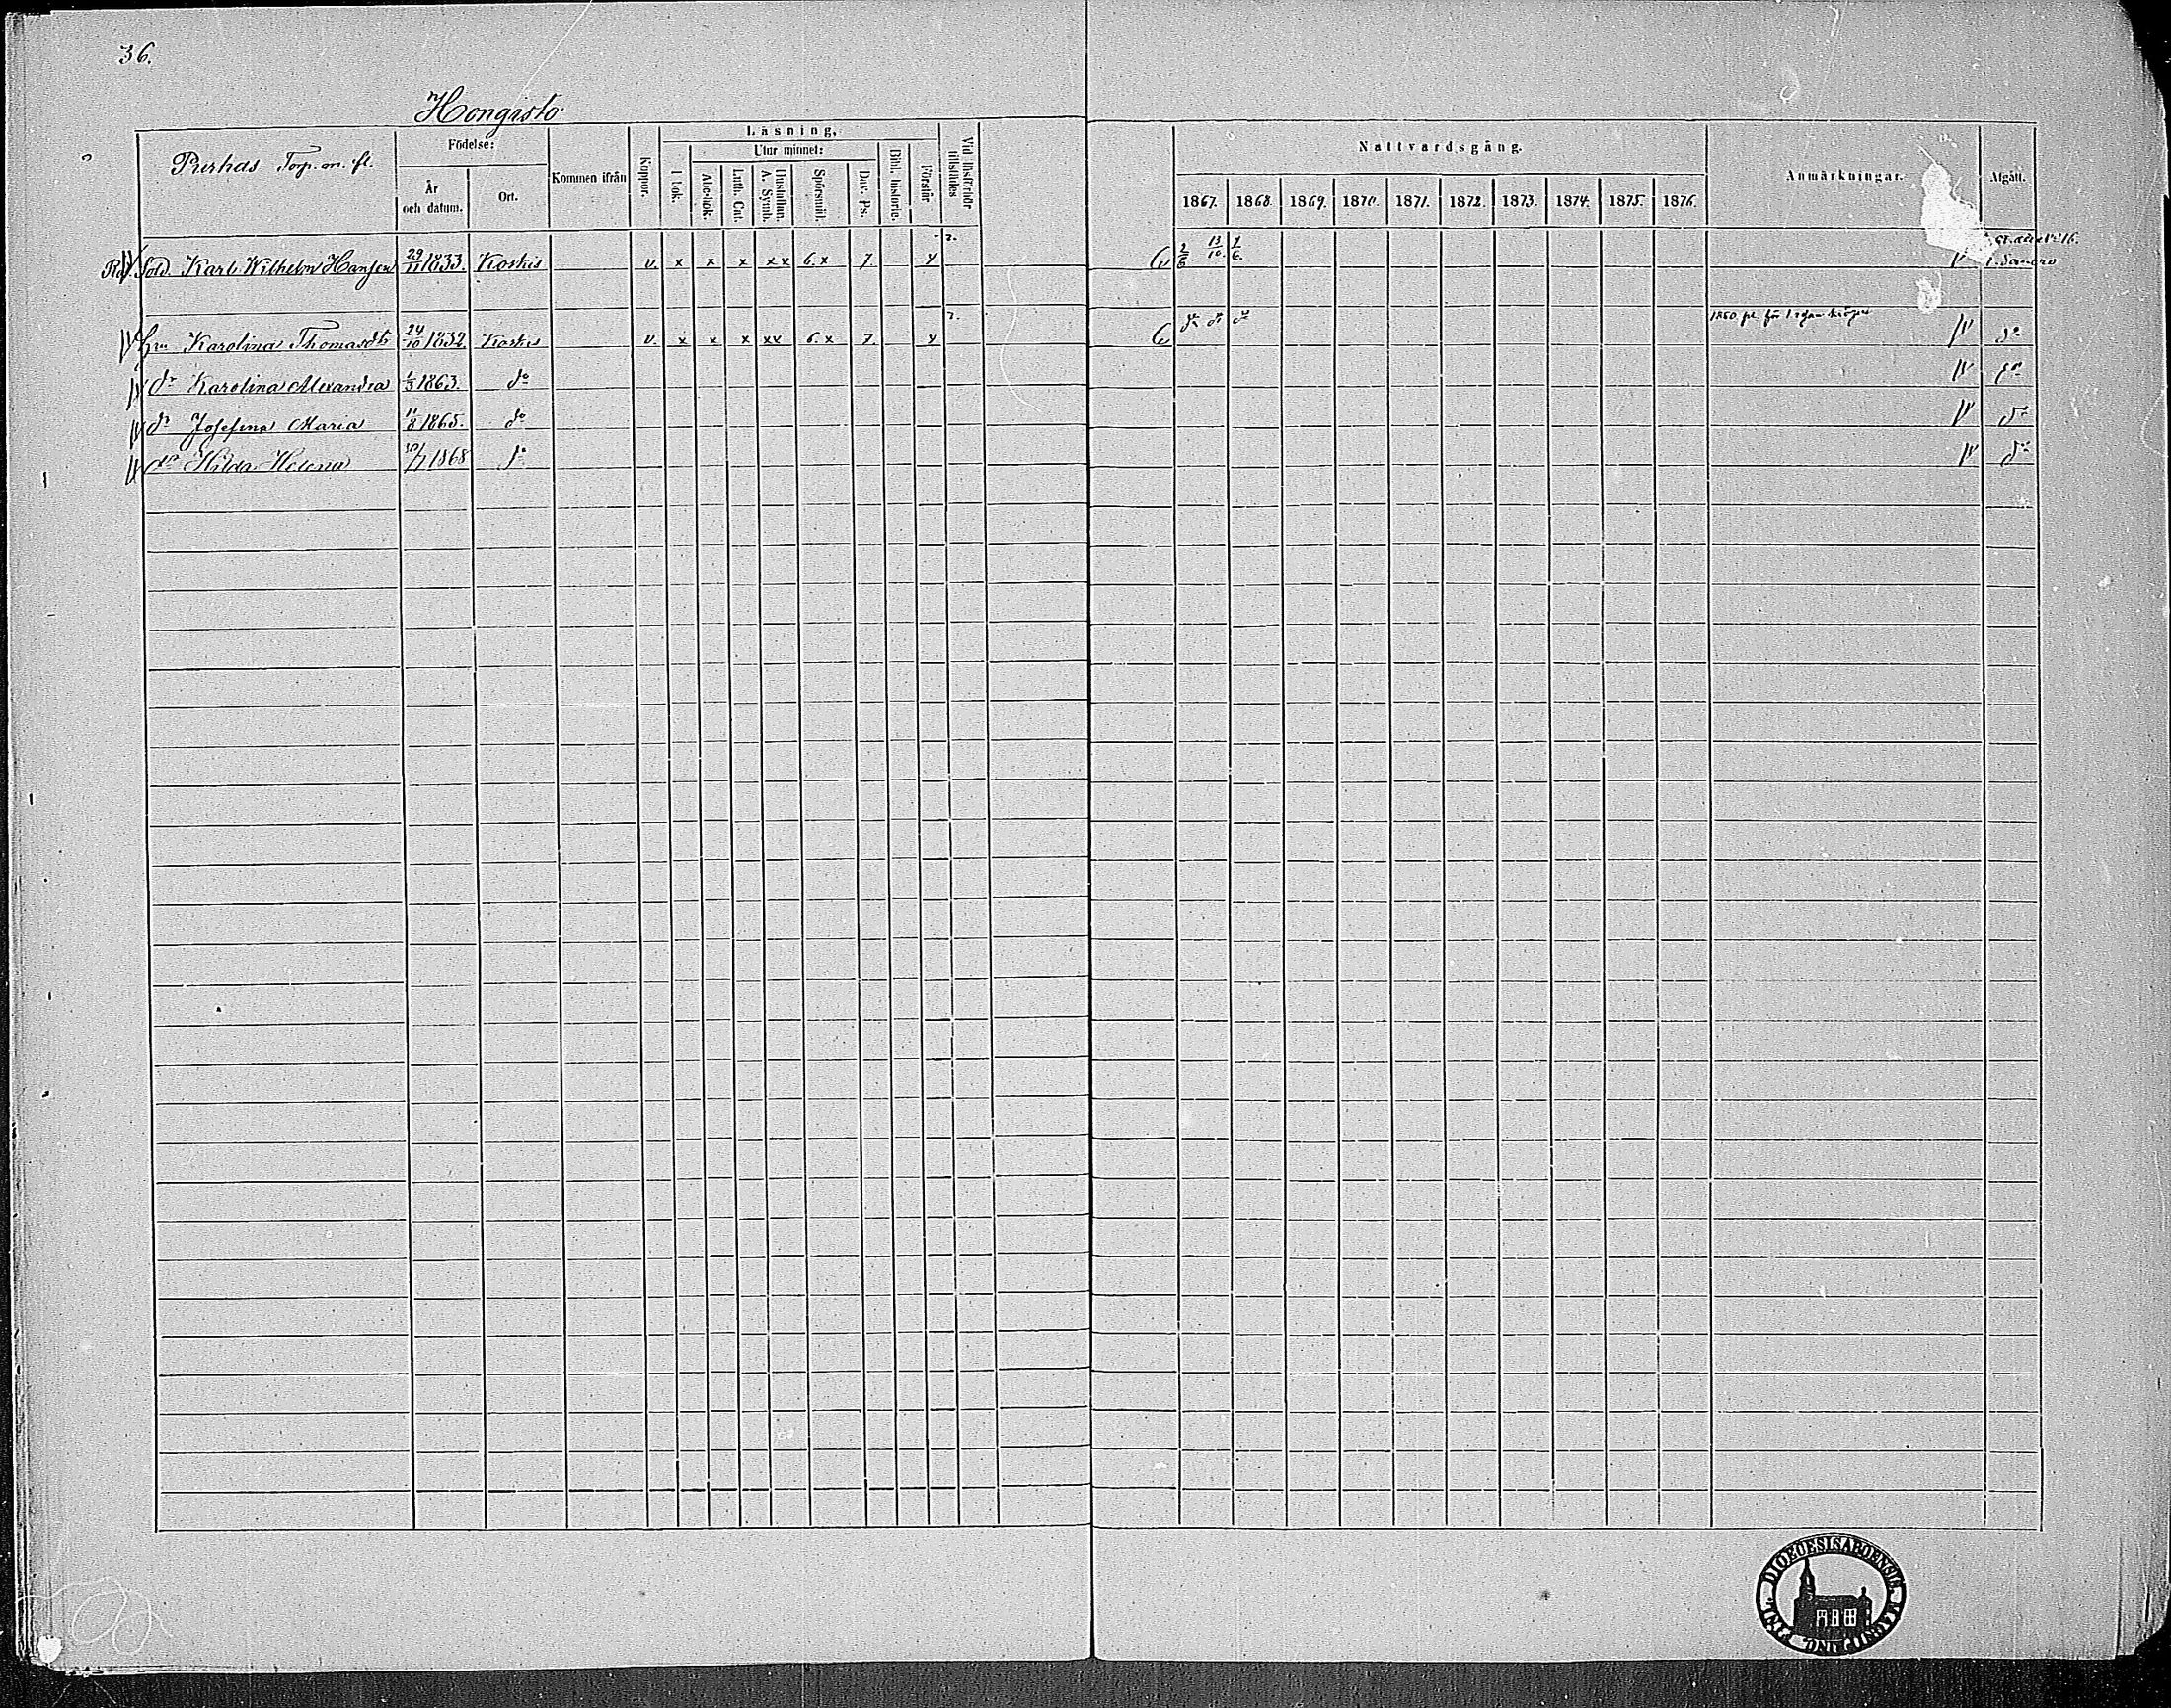 36.
Hongisto
Purhas Torp. on. fl.
Födelse:
År
och datum.
Ort.
Kommen ifrån
Koppor.
Läsning,
I bok.
Utur minnet:
Abc-bok.
Luth. Cat.
Hustaflan.
A. Symb.
Spörsmål.
Dav. Ps.
Bibl. historie.
Förstår
Vid läsförhör
tillstädes
Nattvardsgång.
1867. 1868. 1869. 1870. 1871. 1872. 1873. 1874. 1875. 1876.
Anmärkningar.
Afgått.
Sold. Karl Wilhelm Hansson 29/11 1833. Koskis v. x x x xx 6. x 7. y 2. 2/6 13/10. 7/6.
Hu Karolina Thomasdtr 24/10 1832 Koskis v. x x x xx 6. x 7. y 2. do do do do
dr Karolina Alexandra 1/3 1863. do do
dr Josefina Maria 11/8 1865. do do
dr Hilda Helena 30/7 1868 do do
DIOECESIS ABOENSIS MAGNI DUC. FINL.